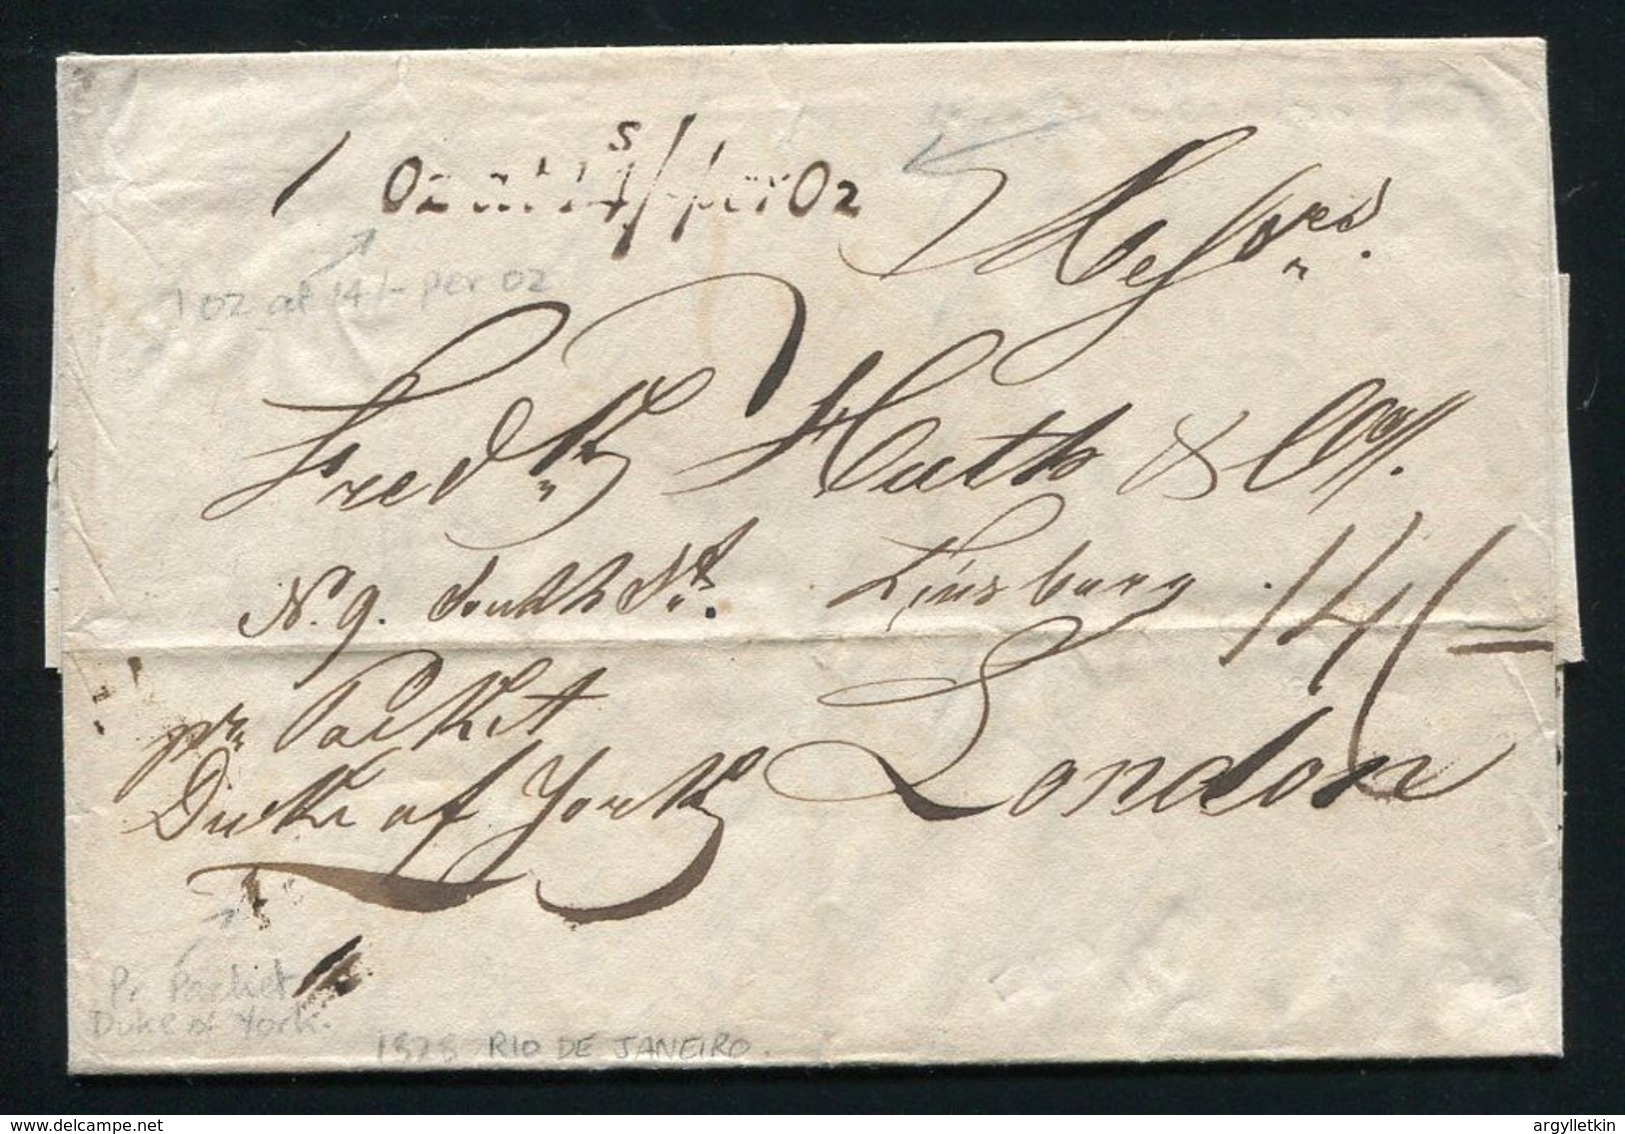 1 Oz at 14s/- per Oz
1 oz at 14/- per oz
Messrs.
Fredk Huth & Co/.
N. 9. South St. Finsbury.
14/-
London
pr. Packet
Duke of York
Pr Packet
Duke of York.
1828 RIO DE JANEIRO.
www.delcampe.net
argylletkin